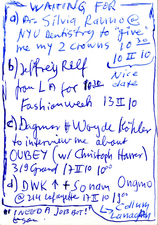 WAITING FOR
a) Dr. Silvia Rahmo @
NYU Dentistry to "give"
me my 2 crowns 10 30
10 II 10
b) Jeffrey Relf Nice
from LA for date
Fashionweek 13 II 10
c) Dagmar + Woyde Köhler
to interview me about
OUBEY (w/ Christoph Harrer)
319 Grand 17 II 10
d) DWK ↑ + Sonam
@ 214 Lafayette 17 II 10
"I NEED A JOB BOT!"